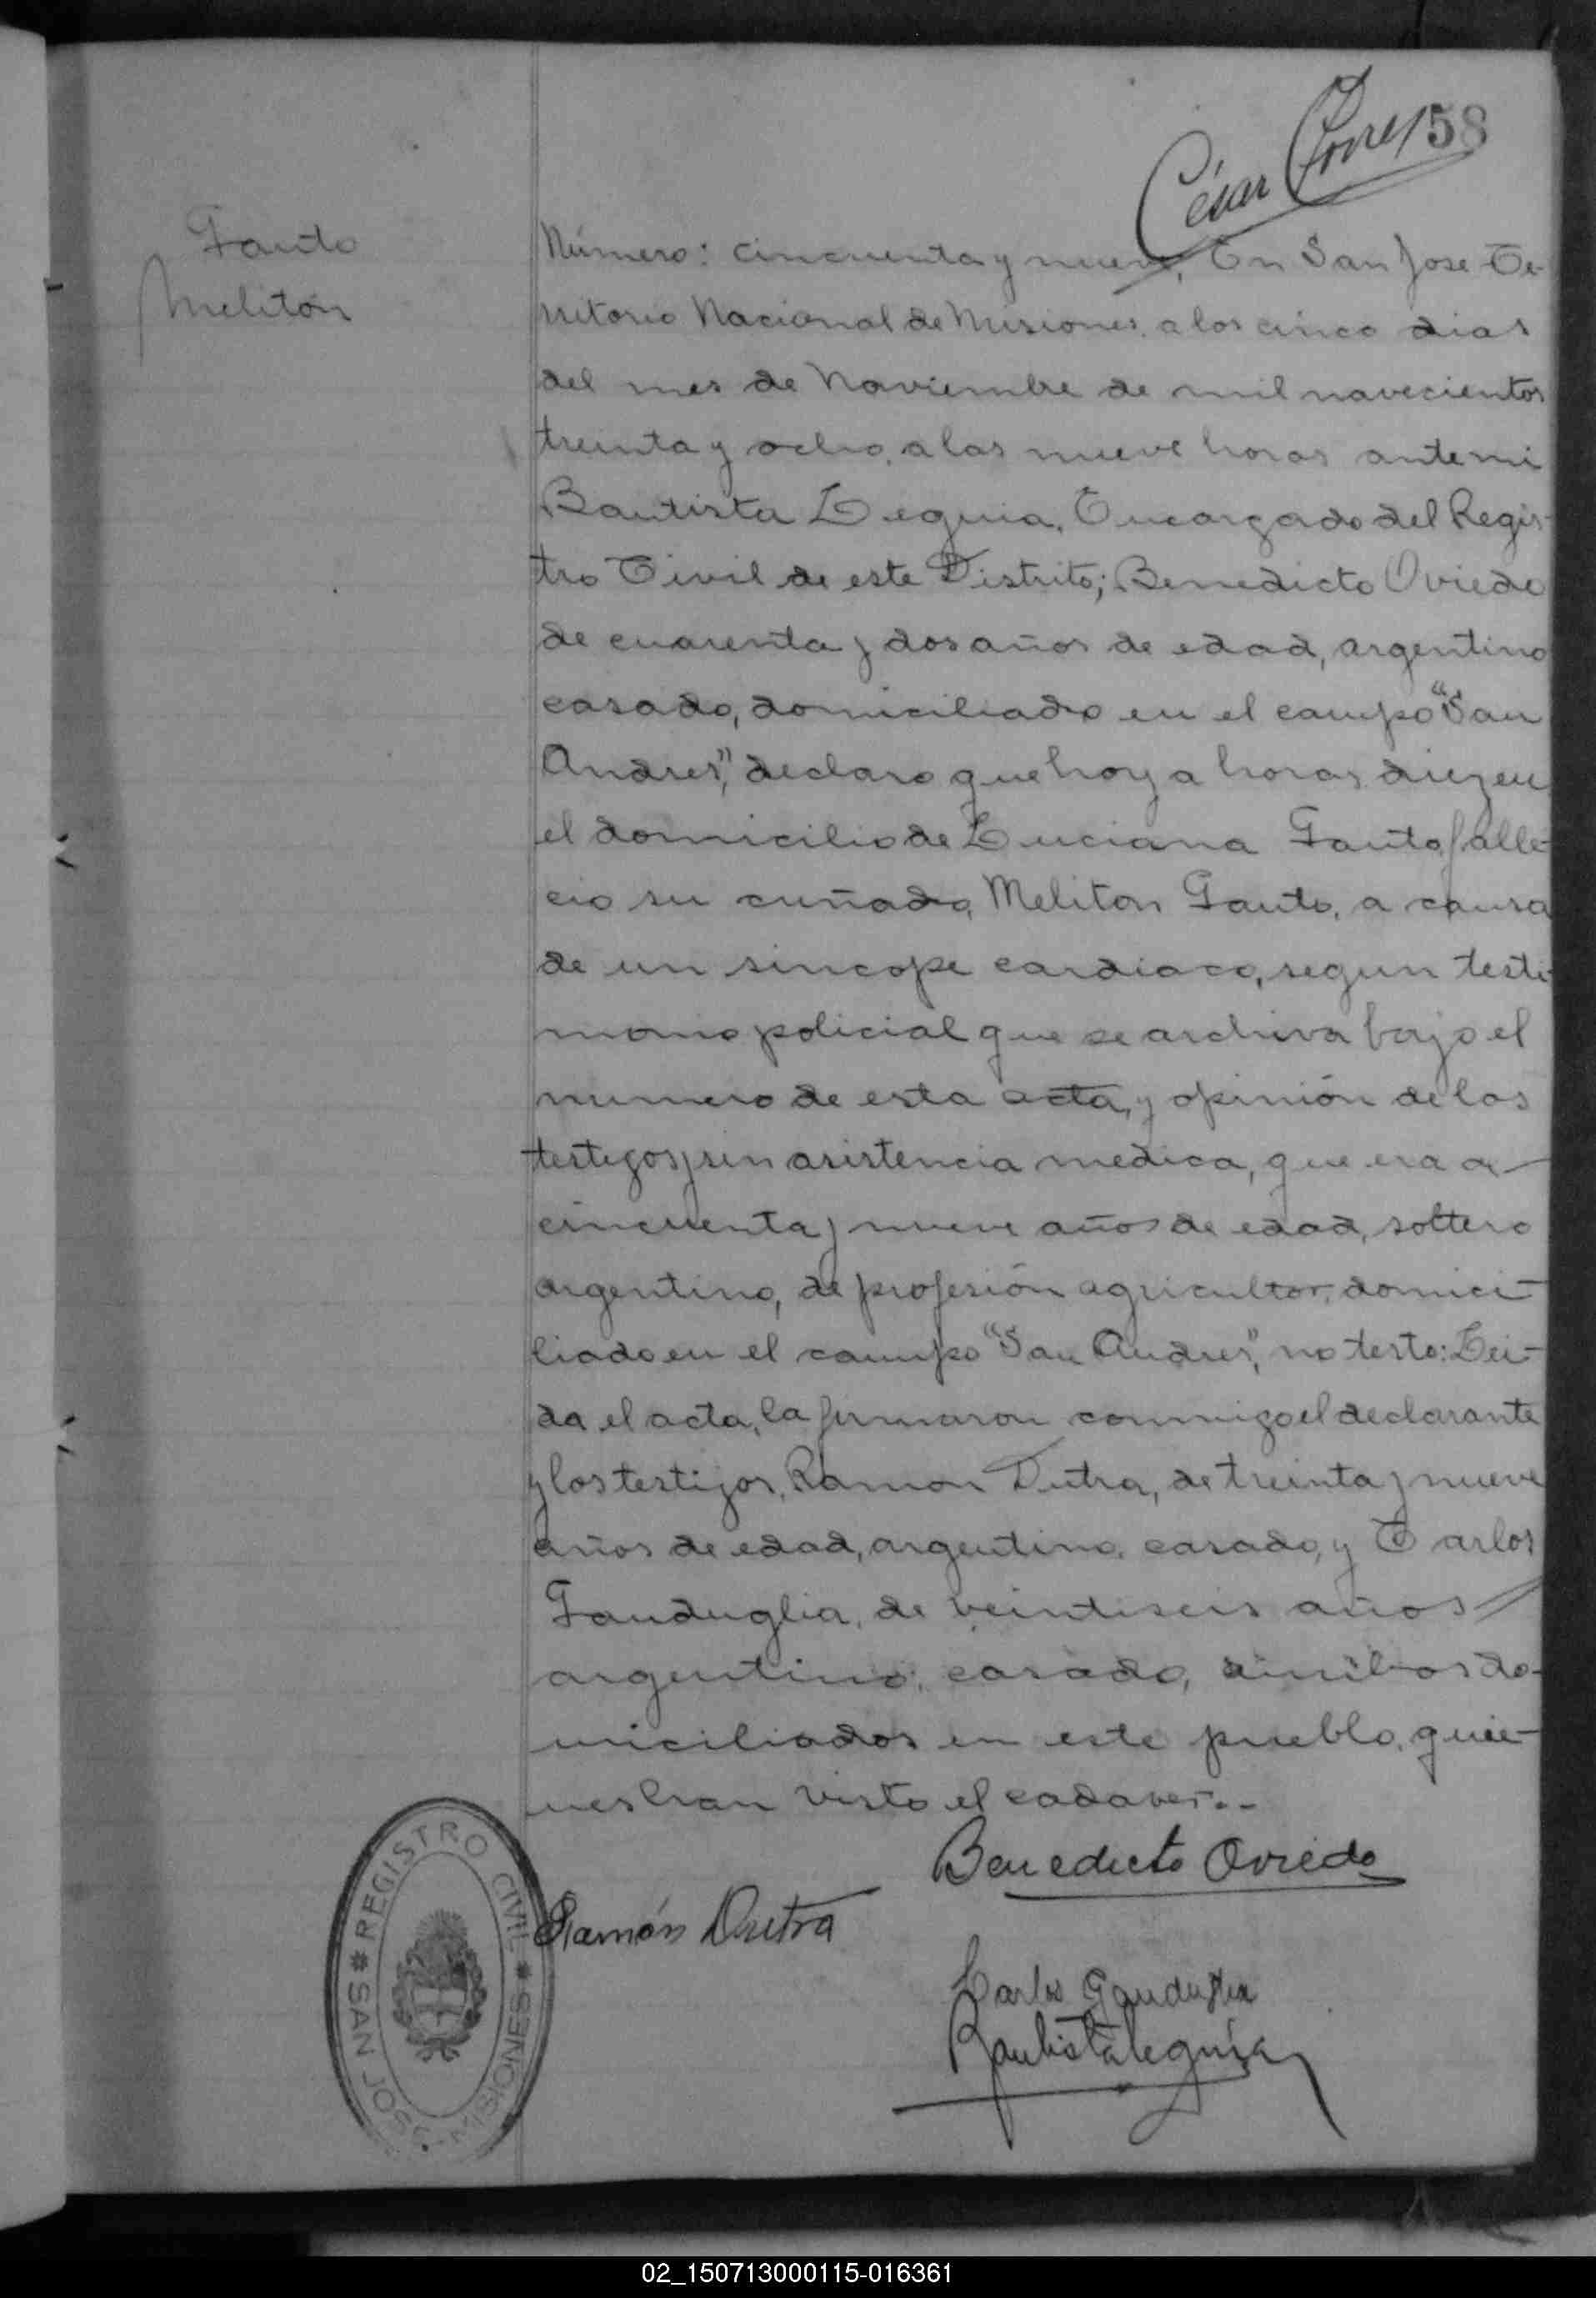 César Torres
58
Gauto
Meliton
Número: cincuenta y nueve, En San Jose Te-
rritorio Nacional de Misiones, a los cinco dias
del mes de Noviembre de mil novecientos
treinta y ocho, a las nueve horas ante mi
Bautista Leguia, Encargado del Regis-
tro Civil de este Distrito; Benedicto Oviedo
de cuarenta y dos años de edad, argentino
casado, domiciliado en el campo "San
Andres", declaro que hoy a horas diez en
el domicilio de Luciana Gauto falle-
cio su cuñado, Meliton Gauto, a causa
de un sincope cardiaco, segun testi-
monio policial que se archiva bajo el
numero de esta acta, y opinión de los
testigos y sin asistencia medica, que era de
cincuenta y nueve años de edad, soltero
argentino, de profesión agricultor, domici-
liado en el campo "San Andres", no testo: Lei-
da el acta, la firmaron conmigo el declarante
y los testigos, Ramon Dutra, de treinta y nueve
años de edad, argentino, casado, y Carlos
Gauduglia, de veintiseis años
argentino, casado, ambos do-
miciliados en este pueblo, quie-
nes han visto el cadaver.--
Benedicto Oviedo
Ramón Dutra
Carlos Gauduglia
Bautista Leguía
REGISTRO CIVIL
SAN JOSÉ - MISIONES
02_150713000115-016361